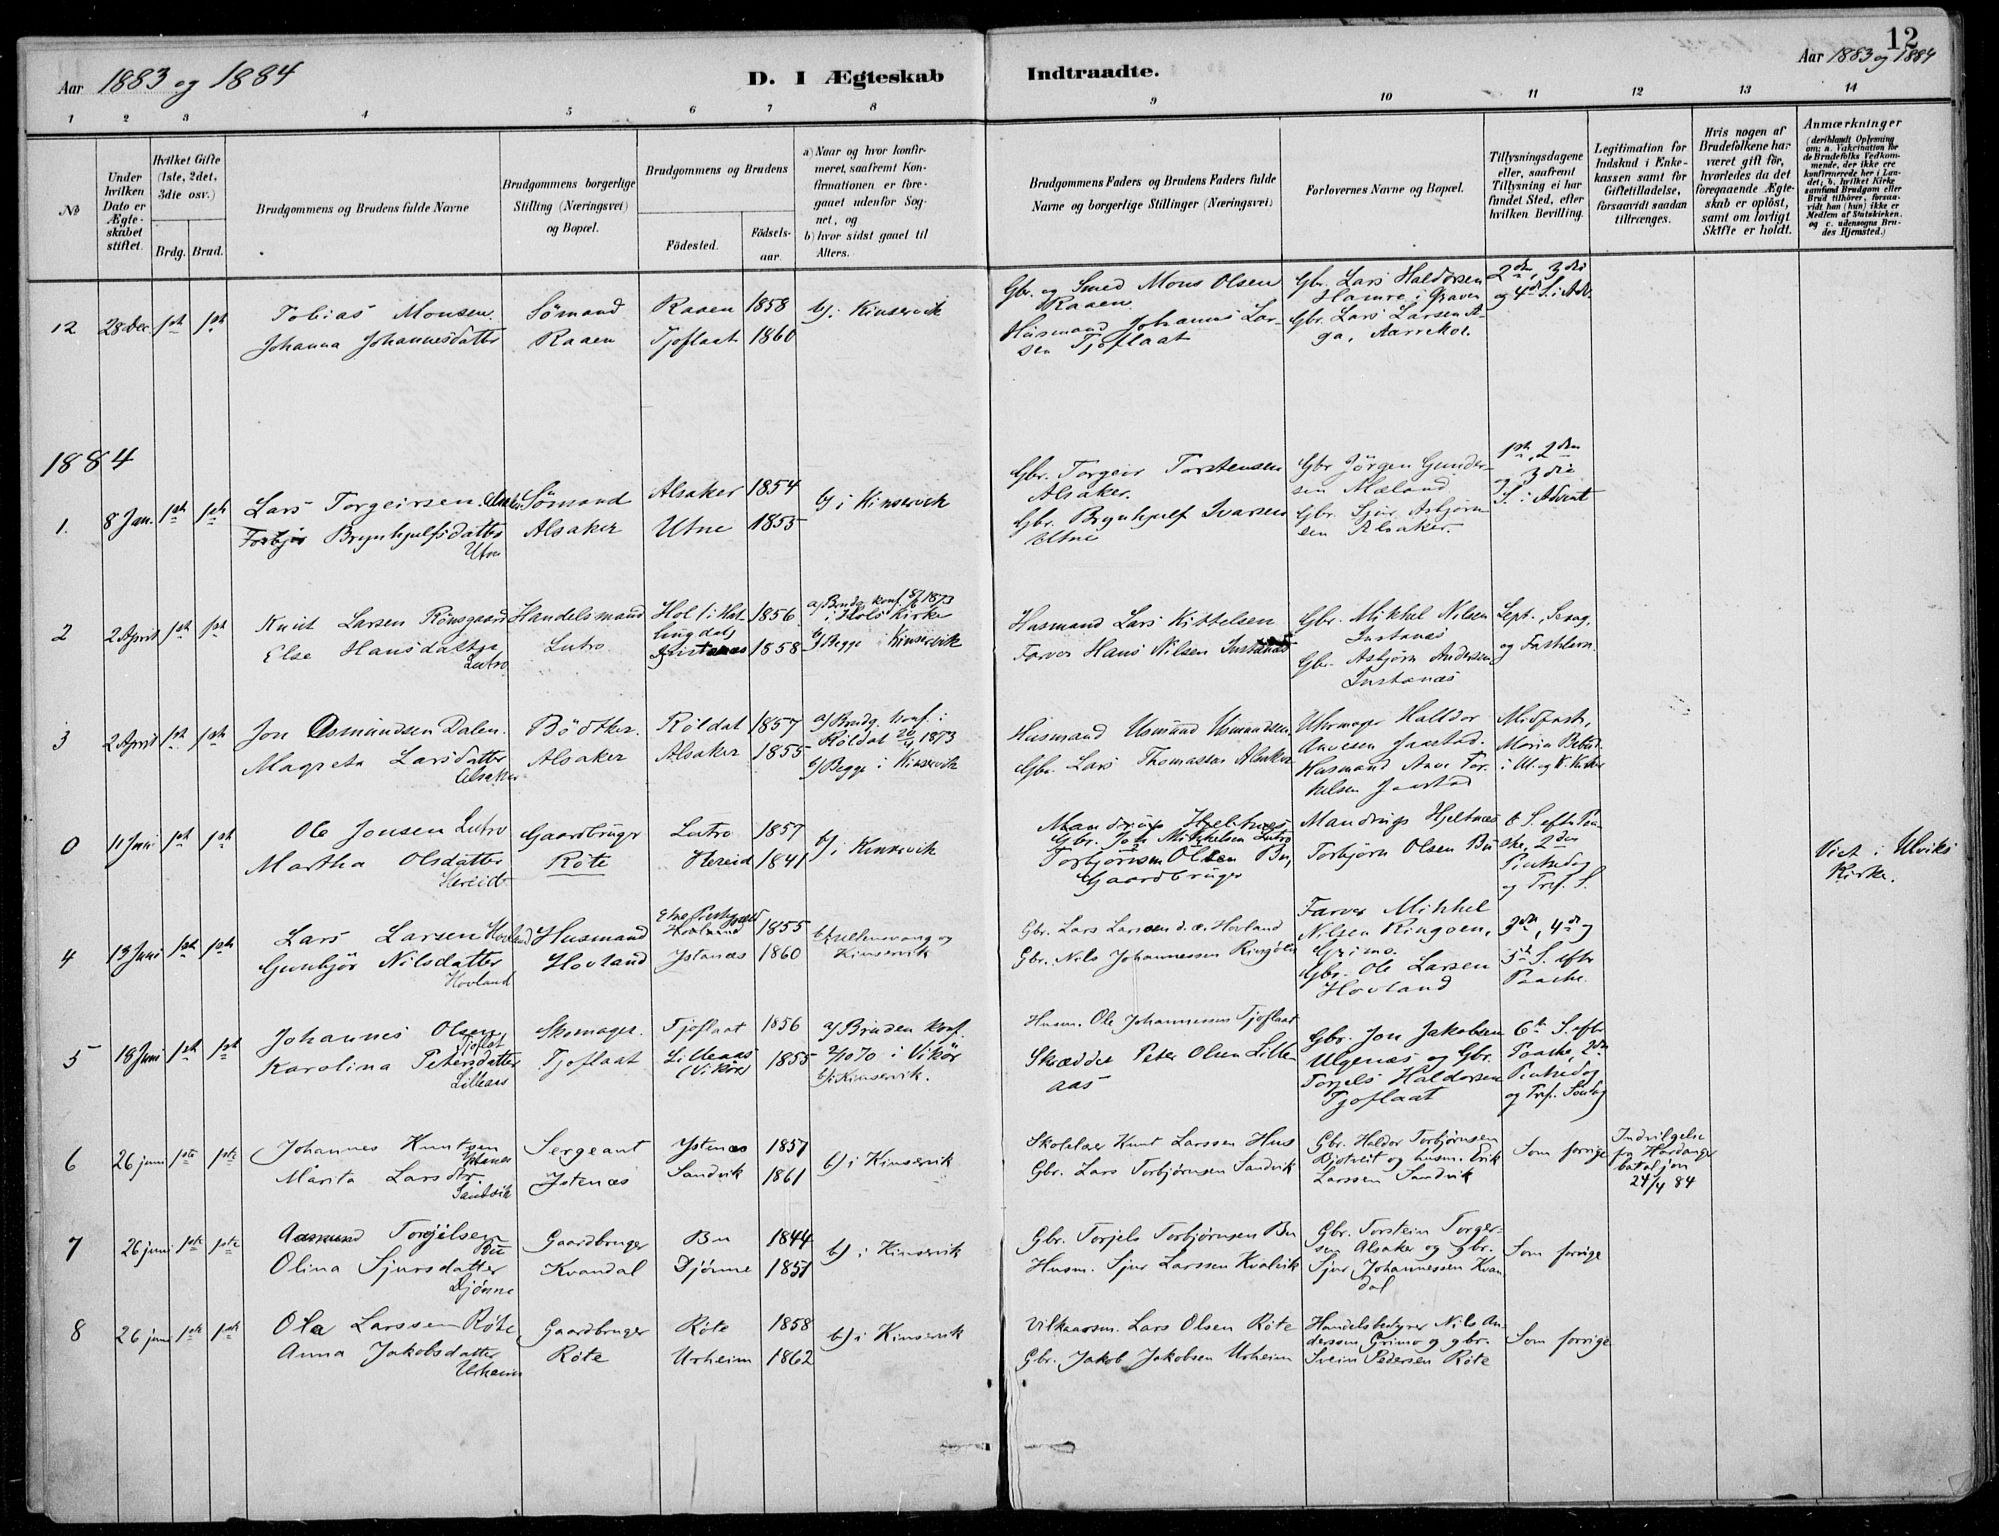 12
Aar 1883 og 1884
D. I Ægteskab Indtraadte.
Aar 1883 og 1884
1 2 3 4 5 6 7 8 9 10 11 12 13 14
№
Under hvilken Dato er Ægteskabet stiftet.
Hvilket Gifte (1ste, 2det, 3die osv.)
Brdg. Brud.
Brudgommens og Brudens fulde Navne
Brudgommens borgerlige Stilling (Næringsvei) og Bopæl.
Brudgommens og Brudens
Födested. Födselsaar.
a) Naar og hvor konfirmeret, saafremt Konfirmationen er foregaaet udenfor Sognet, og
b) hvor sidst gaaet til Alters.
Brudgommens Faders og Brudens Faders fulde Navne og borgerlige Stillinger (Næringsvei)
Forlovernes Navne og Bopæl.
Tillysningsdagene eller, saafremt Tillysning ei har fundet Sted, efter hvilken Bevilling.
Legitimation for Indskud i Enkekassen samt for Giftetilladelse, forsaavidt saadan tiltrænges.
Hvis nogen af Brudefolkene har været gift för, hvorledes da det foregaaende Ægteskab er oplöst, samt om lovligt Skifte er holdt.
Anmærkninger
(deriblandt Oplysning om: a. Vakcination for de Brudefolks Vedkommende, der ikke ere konfirmerede her i Landet; b. hvilket Kirkesamfund Brudgom eller Brud tilhörer, forsaavidt han (hun) ikke er Medlem af Statskirken. og c. udensogns Brudes Hjemsted.)
12 28 Dec. 1ste 1ste Tobias Monsen. Sömand Raaen 1858 b/ i Kinservik
Johanna Johannesdatter Raaen Tjoflaat 1860
Gbr. og Smed Mons Olsen Raaen.
Husmand Johannes Larsen Tjoflaat
Gbr. Lars Haldorsen Hamre i Graven
Gbr. Lars Larsen Aga, Aarrekol.
2den, 3die og 4de S. i Adv.
1884
1. 8 Jan. 1ste 1ste Lars Torgeirsen Sömand Alsaker 1854 b/ i Kinservik
Torbjör Brynhjulfsdatter Utne Alsaker Utne 1855
Gbr. Torgeir Torstensen Alsaker.
Gbr. Brynhjulf Ivarsen Utne
Gbr Jörgen Gundersen Mæland
Gbr. Sjur Asbjörnsen Alsaker.
1ste, 2den, 3die S. i Advent
2 2 April 1ste 1ste Knut Larsen Rönsgaard Handelsmand Hol i Hallingdal 1856 a/ Brudg. konf. 1873 i Hols Kirke
Else Hansdatter Lutro Lutro 1858 b/ Begge Kinservik
Husmand Lars Kittelsen
Farver Hans Nilsen Instanæs
Gbr. Mikkel Nilsen Instanæs
Gbr. Asbjörn Andersen Instanæs
Sept., Sexag. og Fastelavn.
3 2 April 1ste 1ste Jon Osmundsen Dalen. Bödtker. Röldal 1857 a/ Brudg. konf. i Röldal 20/4 1873
Magreta Larsdatter Alsaker Alsaker Alsaker 1855 b/ Begge i Kinservik
Husmand Usmund Usmundsen
Gbr. Lars Thomassen Alsaker
Uhrmager Halldor Anvesen Jaastad.
Husmand Anve Torkelsen Jaastad
Midfaste, Maria Bebud. i U. og K. Kirker
0 11 Juni 1ste 1ste Ole Jonsen Lutro Gaardbruger Lutro 1857 b/ i Kinservik
Martha Olsdatter Hereid Röte Hereid 1841
Mandrup Hjeltnæs
Gbr. Joh. Mikkelsen Lutro
Torbjörnsen Olsen Bu, Gaardbruger
Mandrup Hjeltnæs
Torbjörn Olsen Bu
6 S. efter Paaske, 2den Pintsedag og Tref. S.
Viet i Ulviks Kirke.
4 13 Juni 1ste 1ste Lars Larsen Hovland Husmand Hovland 1855 b/ i Ullensvang og Kinservik
Gunbjör Nilsdatter Hovland Hovland Ystenæs 1860
Gbr. Lars Larsen d. æ. Hovland
Gbr. Nils Johannessen Ringöen
Farver Mikkel Nilsen Ringoen, Grimo.
Gbr. Ole Larsen Hovland
3die, 4de og 5te S. efter Paaske.
5 18 Juni 1ste 1ste Johannes Olsen Tjoflat Skomager. Tjoflaat 1856 a/ Bruden konf. 2/10 70 i Vikör
Karolina Petersdatter Lilleaas Tjoflaat Lilleaas (Vikör) 1855 b/ i Kinservik.
Husm. Ole Johannessen Tjoflaat
Skrædder Peter Olsen Lilleaas
Gbr. Jon Jakobsen Ulgenæs og Gbr. Torjels Haldorsen Tjoflaat
6te S. efter Paaske, 2den Pintsedag og Tref. Söndag
6 26 juni 1ste 1ste Johannes Knutsen Ystenæs Sergeant Ystenæs 1857 b) i Kinservik
Marita Larsdtr. Sandvik Ystenæs Sandvik 1861
Skolelær Knut Larssen Hus
Gbr. Lars Torbjörnsen Sandvik
Gbr. Haldor Torbjörnsen Djotveit og husm. Erik Larssen Sandvik
Som forrige
Indvilgelse fra Hardanger bataljon 24/4 84
7 26 juni 1ste 1ste Aasmund Torgilsen Bu Gaardbruger Bu 1844 b) i Kinservik
Olina Sjursdatter Djönne Kvandal Djönne 1851
Gbr. Torjels Torbjörnsen Bu
Husm. Sjur Larssen Kvalvik
Gbr. Torstein Torgersen Alsaker og gbr. Sjur Johannessen Kvandal
Som forrige
8 26 juni 1ste 1ste Ola Larssen Röte Gaardbruger Röte 1858 b) i Kinservik
Anna Jakobsdatter Urheim Röte Urheim 1862
Vilkaarsm. Lars Olsen Röte
Gbr. Jakob Jakobsen Urheim
Handelsbetyrer Nils Anderssen Grimo og gbr. Svein Pedersen Röte
Som forrige